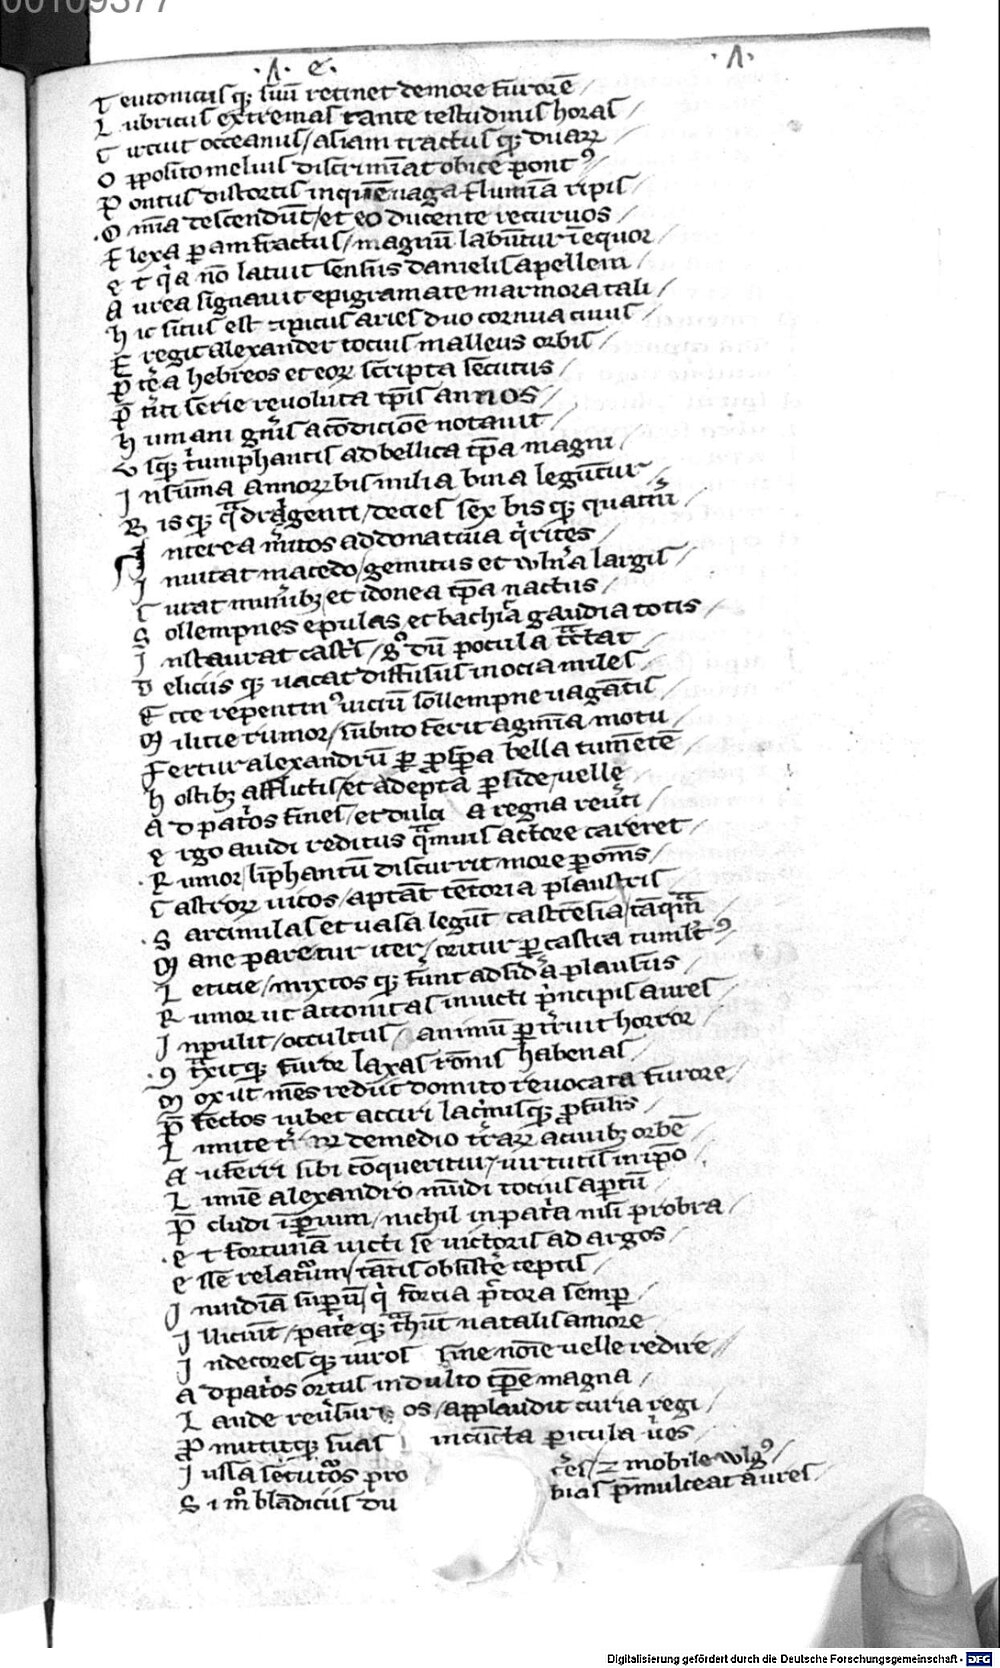 00109377
·A· e· ·A·
Teutonicus q; suu retinet de more furorē
Lubricus extremas tante testudinis horas
Circuit occeanus / asiam tractus q; duarꝝ
Opposito melius discriminat obice pontꝰ
Pontus distortis in quē uaga flumina ripis
Omia descendūt / et eo ducente recuruos
Flexa p amfractus / magnū labūtur ī equor
Et qa nō latuit sensus danielis apellem
Aurea signauit epigramate marmora tali
Hic situs est tipicus aries duo cornua cuius
Fregit alexander tocius malleus orbis
Ptea hebreos et eoꝝ scripta secutus
Ptiti serie reuoluta tpis annos
Humani gnis a condicioē notauit
Vsq; triumphantis ad bellica tpa magni
In summa annoꝝ bis milia bina leguntur
Bisq; qdragenti / decies sex bisq; quattuor
Interea mitos ad donatiua qrites
Inuitat macedo / gemitus et wlna largis
Curat munib; et idonea tpa nactus
Sollempnes epulas et bachia gaudia totis
Instaurat castis / g dū pocula tctat
Deliciis q; uacat diffusus in ocia miles
Ecce repentinꝰ uiciū sollempne uagātis
Milicie rumor / subito ferit agmīa motu
Fertur alexandrū p prospa bella tumētē
Hostib; afflictis / et adepta pside / uelle
Ad patos fines / et dulcia regna reuti
Ergo auidi reditus qmuis actore careret
Rumor / liphantū discurrit more p oms
Castroꝝ uicos / aptāt tētoria plaustris
Sarcinulas et uasa legūt castrēsia / tāqm
Mane paretur iter / oritur p castra tumltꝰ
Leticie / mixtos q; ferunt ad sida plausus
Rumor ut attonitas inuicti pncipis aures
Inpulit / occultus animū pterruit horror
ꝯtxitq; furor laxas rōnis habenas
Mox ut mēs rediit domito reuocata furore
Pfectos iubet acciri lacmisq; pfusis
Auferri sibi cōqueritur / uirtutis in ipo
Limīe alexandro mūdi tocius aptū
Pcludi ipium / nichil in patia nisi probra
Et fortunā uicti se uictoris ad argos
Esse relatum / tātis obsistē ceptis
Inuidiā supū / qi forcia pctora semp
Illiciūt / patie q; thūt natalis amore
Indecores q; uiros sine noīe uelle redire
Ad patos ortus indulto tpe magna
Laude reusuros / applaudit curia regi
Pmittitq; suas in cūcta picula uires
Iussa secutos pro ces / ⁊ mobile wlgꝰ
Si m blādiciis du bias pmulceat aures
Digitalisierung gefördert durch die Deutsche Forschungsgemeinschaft - DFG